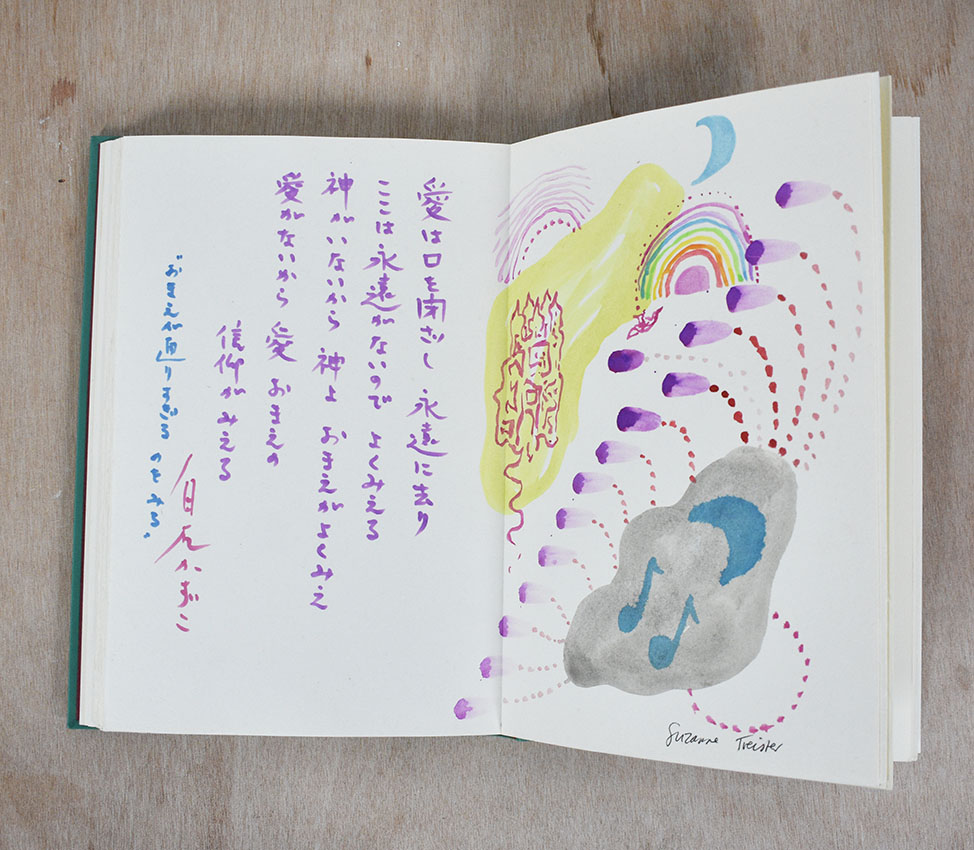 愛は口を閉ざし 永遠に去り
ここは永遠がないので よくみえる
神がいないから 神よ おまえがよくみえ
愛がないから 愛 おまえの
信仰がみえる
おまえが通りすぎるのをみる、
白石かずこ
Suzanne Treister